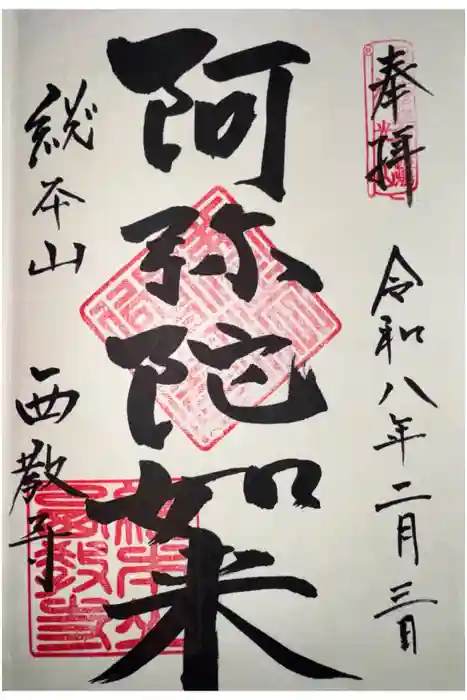 奉拝
令和八年二月三日
阿弥陀如来
総本山 西教寺